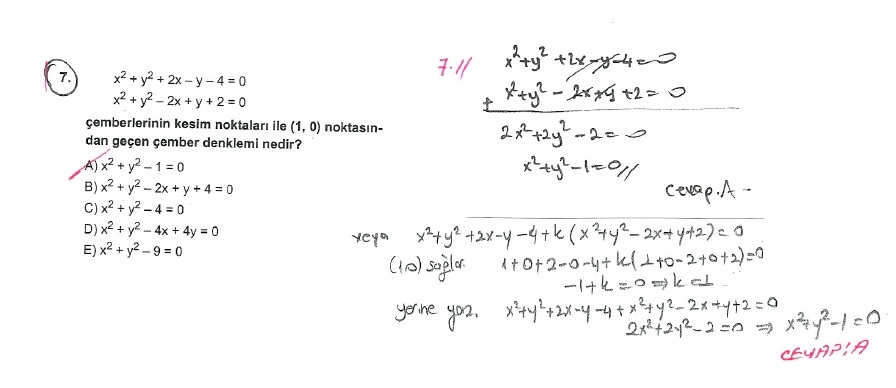 7.
x² + y² + 2x – y – 4 = 0
x² + y² – 2x + y + 2 = 0
çemberlerinin kesim noktaları ile (1, 0) noktasın-
dan geçen çember denklemi nedir?
A) x² + y² – 1 = 0
B) x² + y² – 2x + y + 4 = 0
C) x² + y² – 4 = 0
D) x² + y² – 4x + 4y = 0
E) x² + y² – 9 = 0
7.//
x²+y² +2x-y-4=0
+ x²+y² - 2x+y +2=0
2x²+2y²-2=0
x²+y²-1=0//
Cevap.A-
veya x²+y²+2x-y-4+k(x²+y²-2x+y+2)=0
(1,0) sağlar. 1+0+2-0-4+k(1+0-2+0+2)=0
-1+k=0 ⇒ k=1
yerine yaz. x²+y²+2x-y-4+x²+y²-2x+y+2=0
2x²+2y²-2=0 ⇒ x²+y²-1=0
CEVAP:A